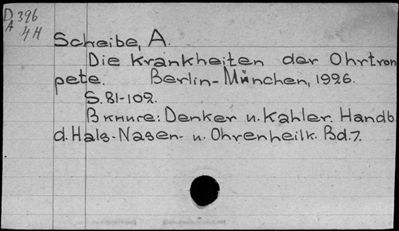 D 396
A 4H
Scheibe, A.
Die Krankheiten der Ohrtrom
pete. Berlin-München, 1926.
S. 81-102.
В книге: Denker u. Kahler. Handb
d. Hals-Nasen- u. Ohrenheilk. Bd. 7.